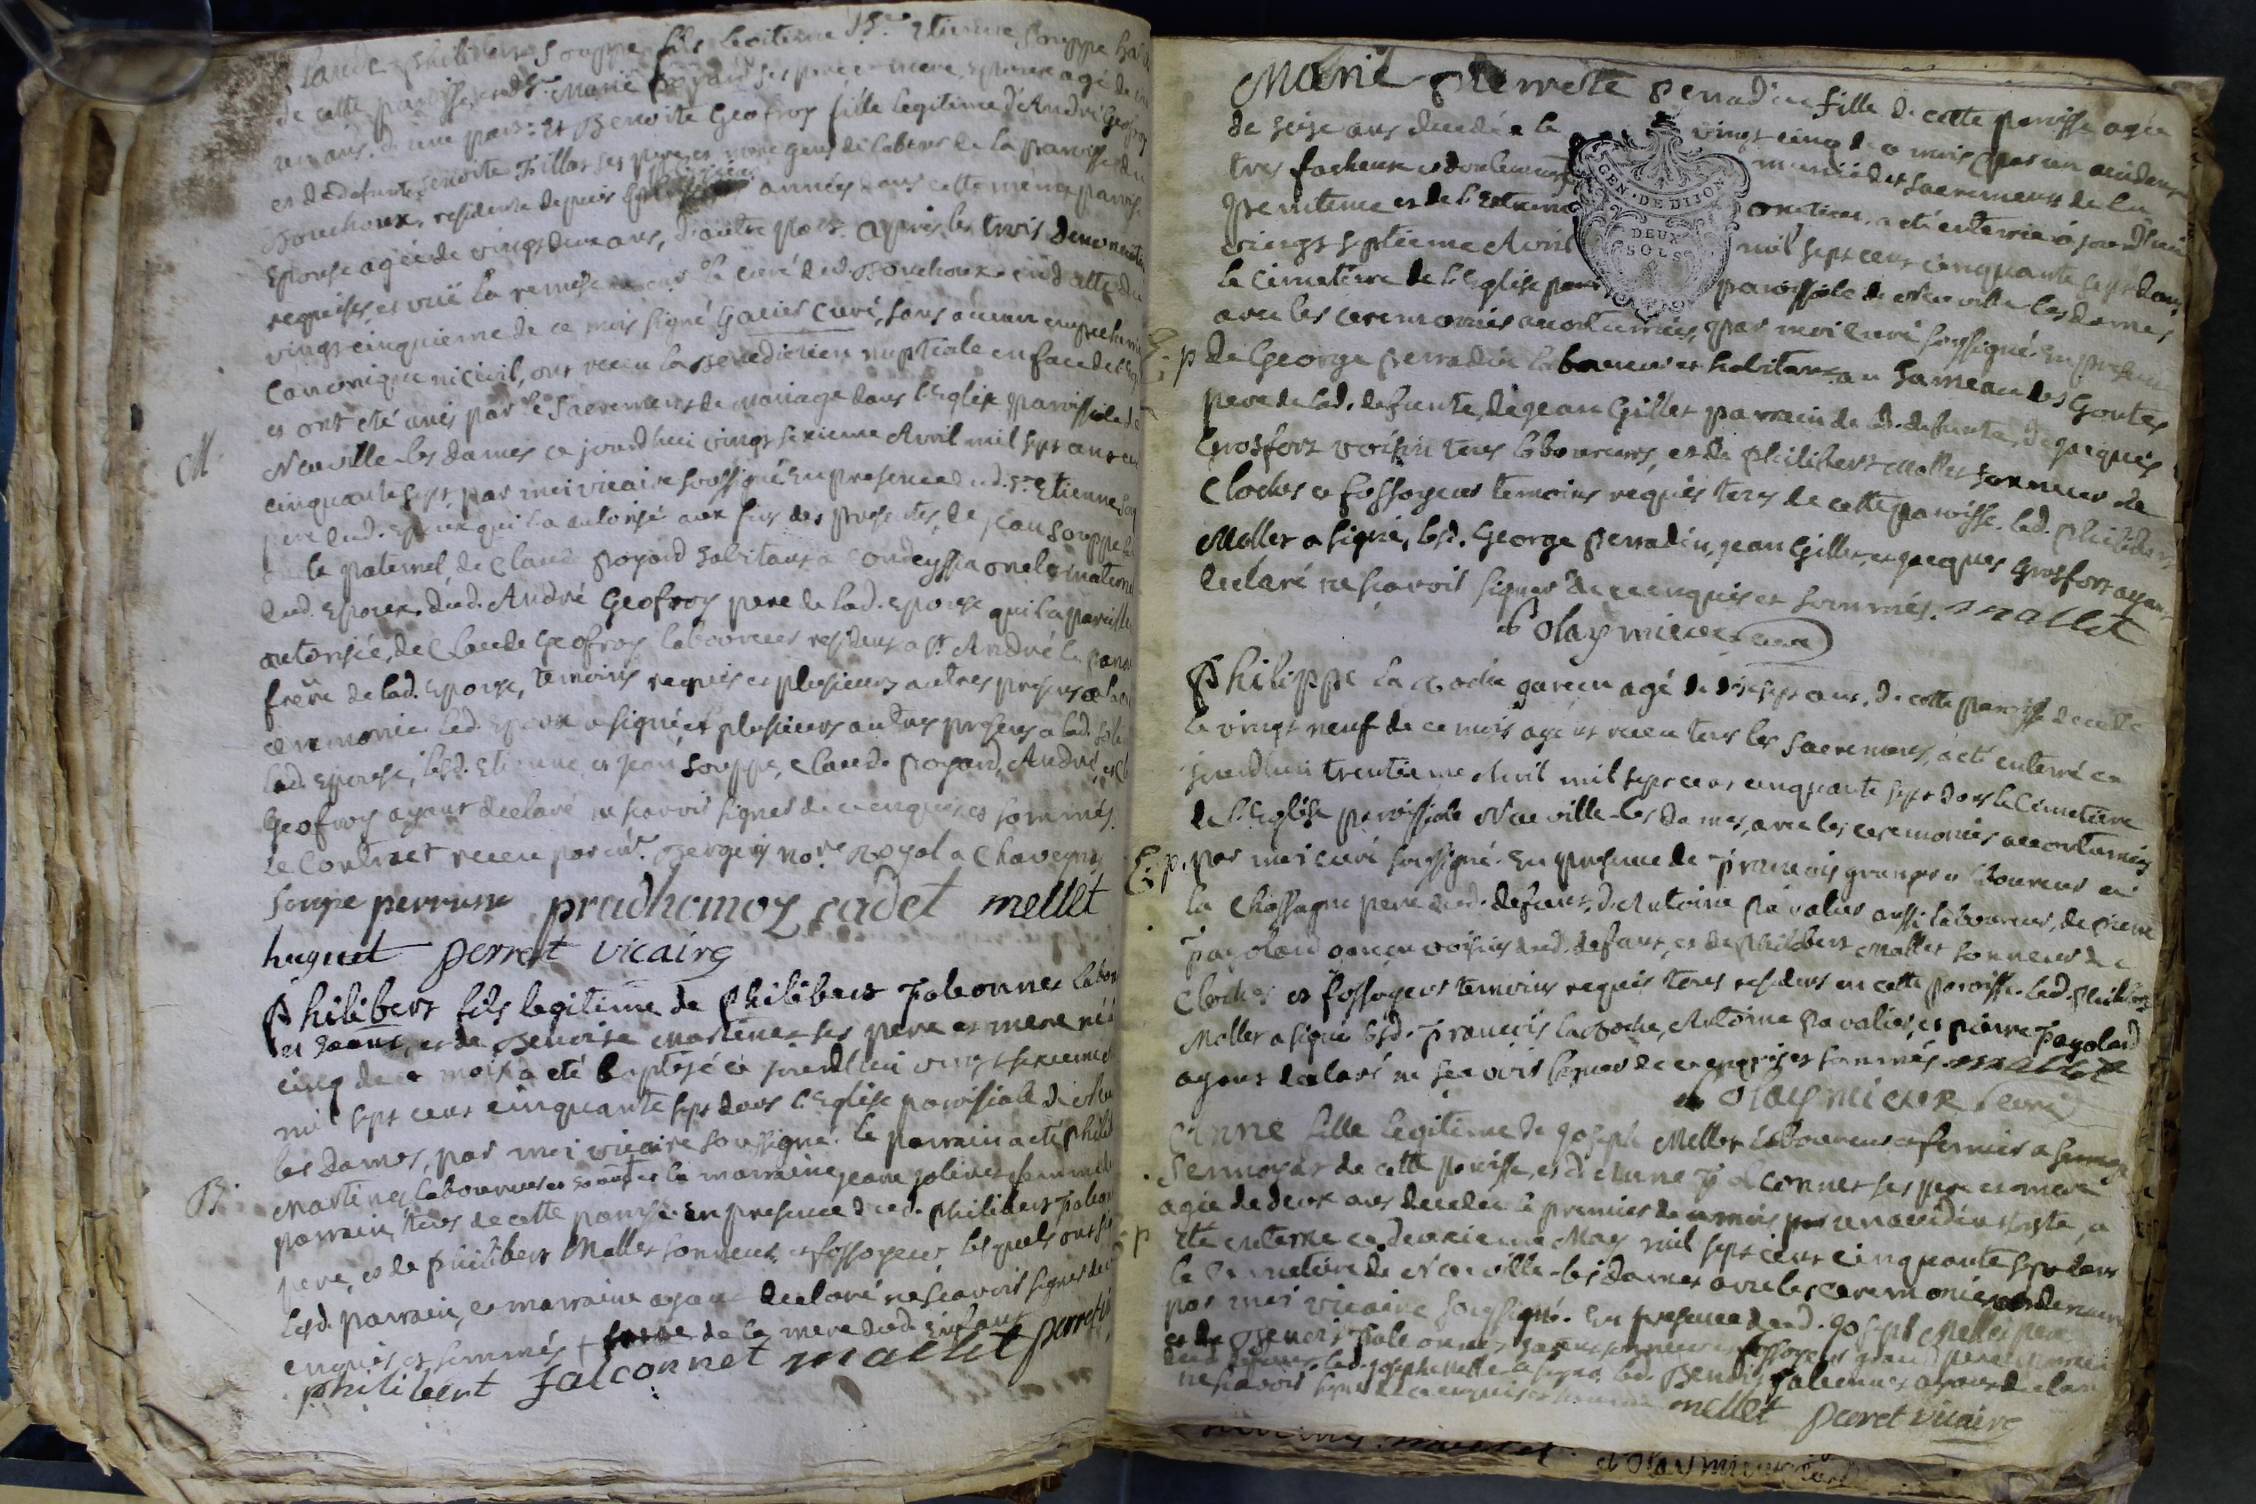 Claude Philibert Souppe fils legitime d'Sr. Etienne Souppe
de cette paroisse, et d. Marie Poyard ses pere et mere, Epoux agé de
ans, d'une part: Et Benoite Geofroy fille legitime d'André Geofroy
et de defunte Benoite Fillot ses pere et mere gens de labeur de la paroisse du
Bouchoux, residente depuis années dans cette même paroisse
Epouse agée de vingt deux ans, d'autre part. Apres les trois denonciations
requises et vuë la remise de Mr. le curé dud. Bouchoux en datte du
vingt cinquieme de ce mois signé Gacier Curé, sans aucun empechement
Canonique ni civil, ont receu la Benediction nuptiale en face de l'Eglise
et ont eté unis par le Sacrement de mariage dans l'Eglise paroissiale de
M. Neuville-les dames ce jourd'hui vingt sixieme Avril mil sept cent
cinquante sept, par moi vicaire soussigné. En presence dud. Sr. Etienne
pere dud. Epoux qui l'a autorisé aux fins des presentes, de Jean Souppe
oncle paternel, de Claude Poyard habitant a Condeyssia oncle maternel
dud. Epoux, dud. André Geofroy pere de lad. Epouse qui l'a pareillement
autorisée, de Claude Geofroy laboureur resident a St. André le panoux
frere de lad. Epouse, temoins requis et plusieurs autres presens a la
ceremonie. Led. Epoux a signé et plusieurs autres presens a lad.
Lad. Epouse, lesd. Etienne et Jean Souppe, Claude Poyard, André, et Cl
Geofroy ayant declaré ne scavoir signer de ce enquis et sommés.
Le Contract receu par me. Bergery nore. Royal a Chaveyriat
Soupe perruse prudhomoz cadet mellet
huguet perret vicaire
Philibert fils legitime de Philibert Falconnet labour
et de Benoite Martinet ses pere et mere né le
cinq de ce mois a eté baptisé ce jourd'hui vingt sixieme
mil sept cent cinquante sept dans l'Eglise paroissiale de Neu
les dames, par moi vicaire soussigné. Le parrain a eté Philib
B. Martinet laboureur et la marraine jeane jolivet femme d
parrain, tous de cette paroisse. En presence dud. Philibert Falcon
pere, et de Philibert Mallet sonneur et fossoyeur, lesquels ont si
Lesd. parrain, et marraine ayant declaré ne scavoir signer de
enquis et sommés + de la mere dud. Enfant
philibert falconnet mallet perret vi
Marie Pierrette Perradin fille de cette paroisse agée
de seize ans decedée le vingt cinq de ce mois par un accident
tres facheux et douloureux munie des sacremens de la
penitence et de l'Extreme onction, a eté enterrée ce jourd'hui
vingt septieme Avril mil sept cent cinquante sept dans
le Cimetiere de l'Eglise paroissiale de Neuville-les dames
avec les ceremonies accoutumées, par moi curé soussigné. En presence
de George Perradin laboureur et habitant au hameau des Goutes
pere de lad. defunte, de jean Gillet parrain de lad. defunte, de jacques
Grosfort voisin tous laboureurs, et de Philibert Mallet sonneur de
Cloches et fossoyeur temoins requis tous de cette paroisse. Led. Philibert
Mallet a signé, lesd. George Perradin, jean Gillet, et jacques Grosfort ayant
declaré ne scavoir signer de ce enquis et sommés. mallet
GEN. DE DIJON
DEUX
SOLS
Philippe la Roche garcon agé de dix sept ans, de cette paroisse decedé
le vingt neuf de ce mois ayant receu tous les sacremens, a eté enterré ce
jourd'hui trentieme Avril mil sept cent cinquante sept dans le Cimetiere
de l'Eglise paroissiale Neuville-les dames, avec les ceremonies accoutumées
par moi curé soussigné. En presence de François granger laboureur en
la Chassagne pere dud. defunt, d'Antoine Pavalier aussi laboureur, de Pierre
Payolard garcon voisins dud. defunt, et de Philibert Mallet sonneur de
Cloches et fossoyeur temoins requis tous residens en cette paroisse. Led. Philibert
Mallet a signé lesd. François la Roche, Antoine Pavalier, et pierre Payolard
ayant declaré ne scavoir signer de ce enquis et sommés. mallet
curé
Anne fille legitime de joseph Mellet laboureur et fermier a
de cette paroisse, et d'Anne Falconnet ses pere et mere
agée de deux ans decedée le premier de ce mois par un accident triste, a
eté enterrée ce deuxieme May mil sept cent cinquante sept dans
le Cimetiere de Neuville-les dames avec les ceremonies
par moi vicaire soussigné. En presence dud. joseph Mellet pere
et de Benoit Falconnet fossoyeur grand pere
Led. joseph Mellet a signé led. Benoit Falconnet ayant declaré
ne scavoir signer de ce enquis et sommé mellet perret vicaire